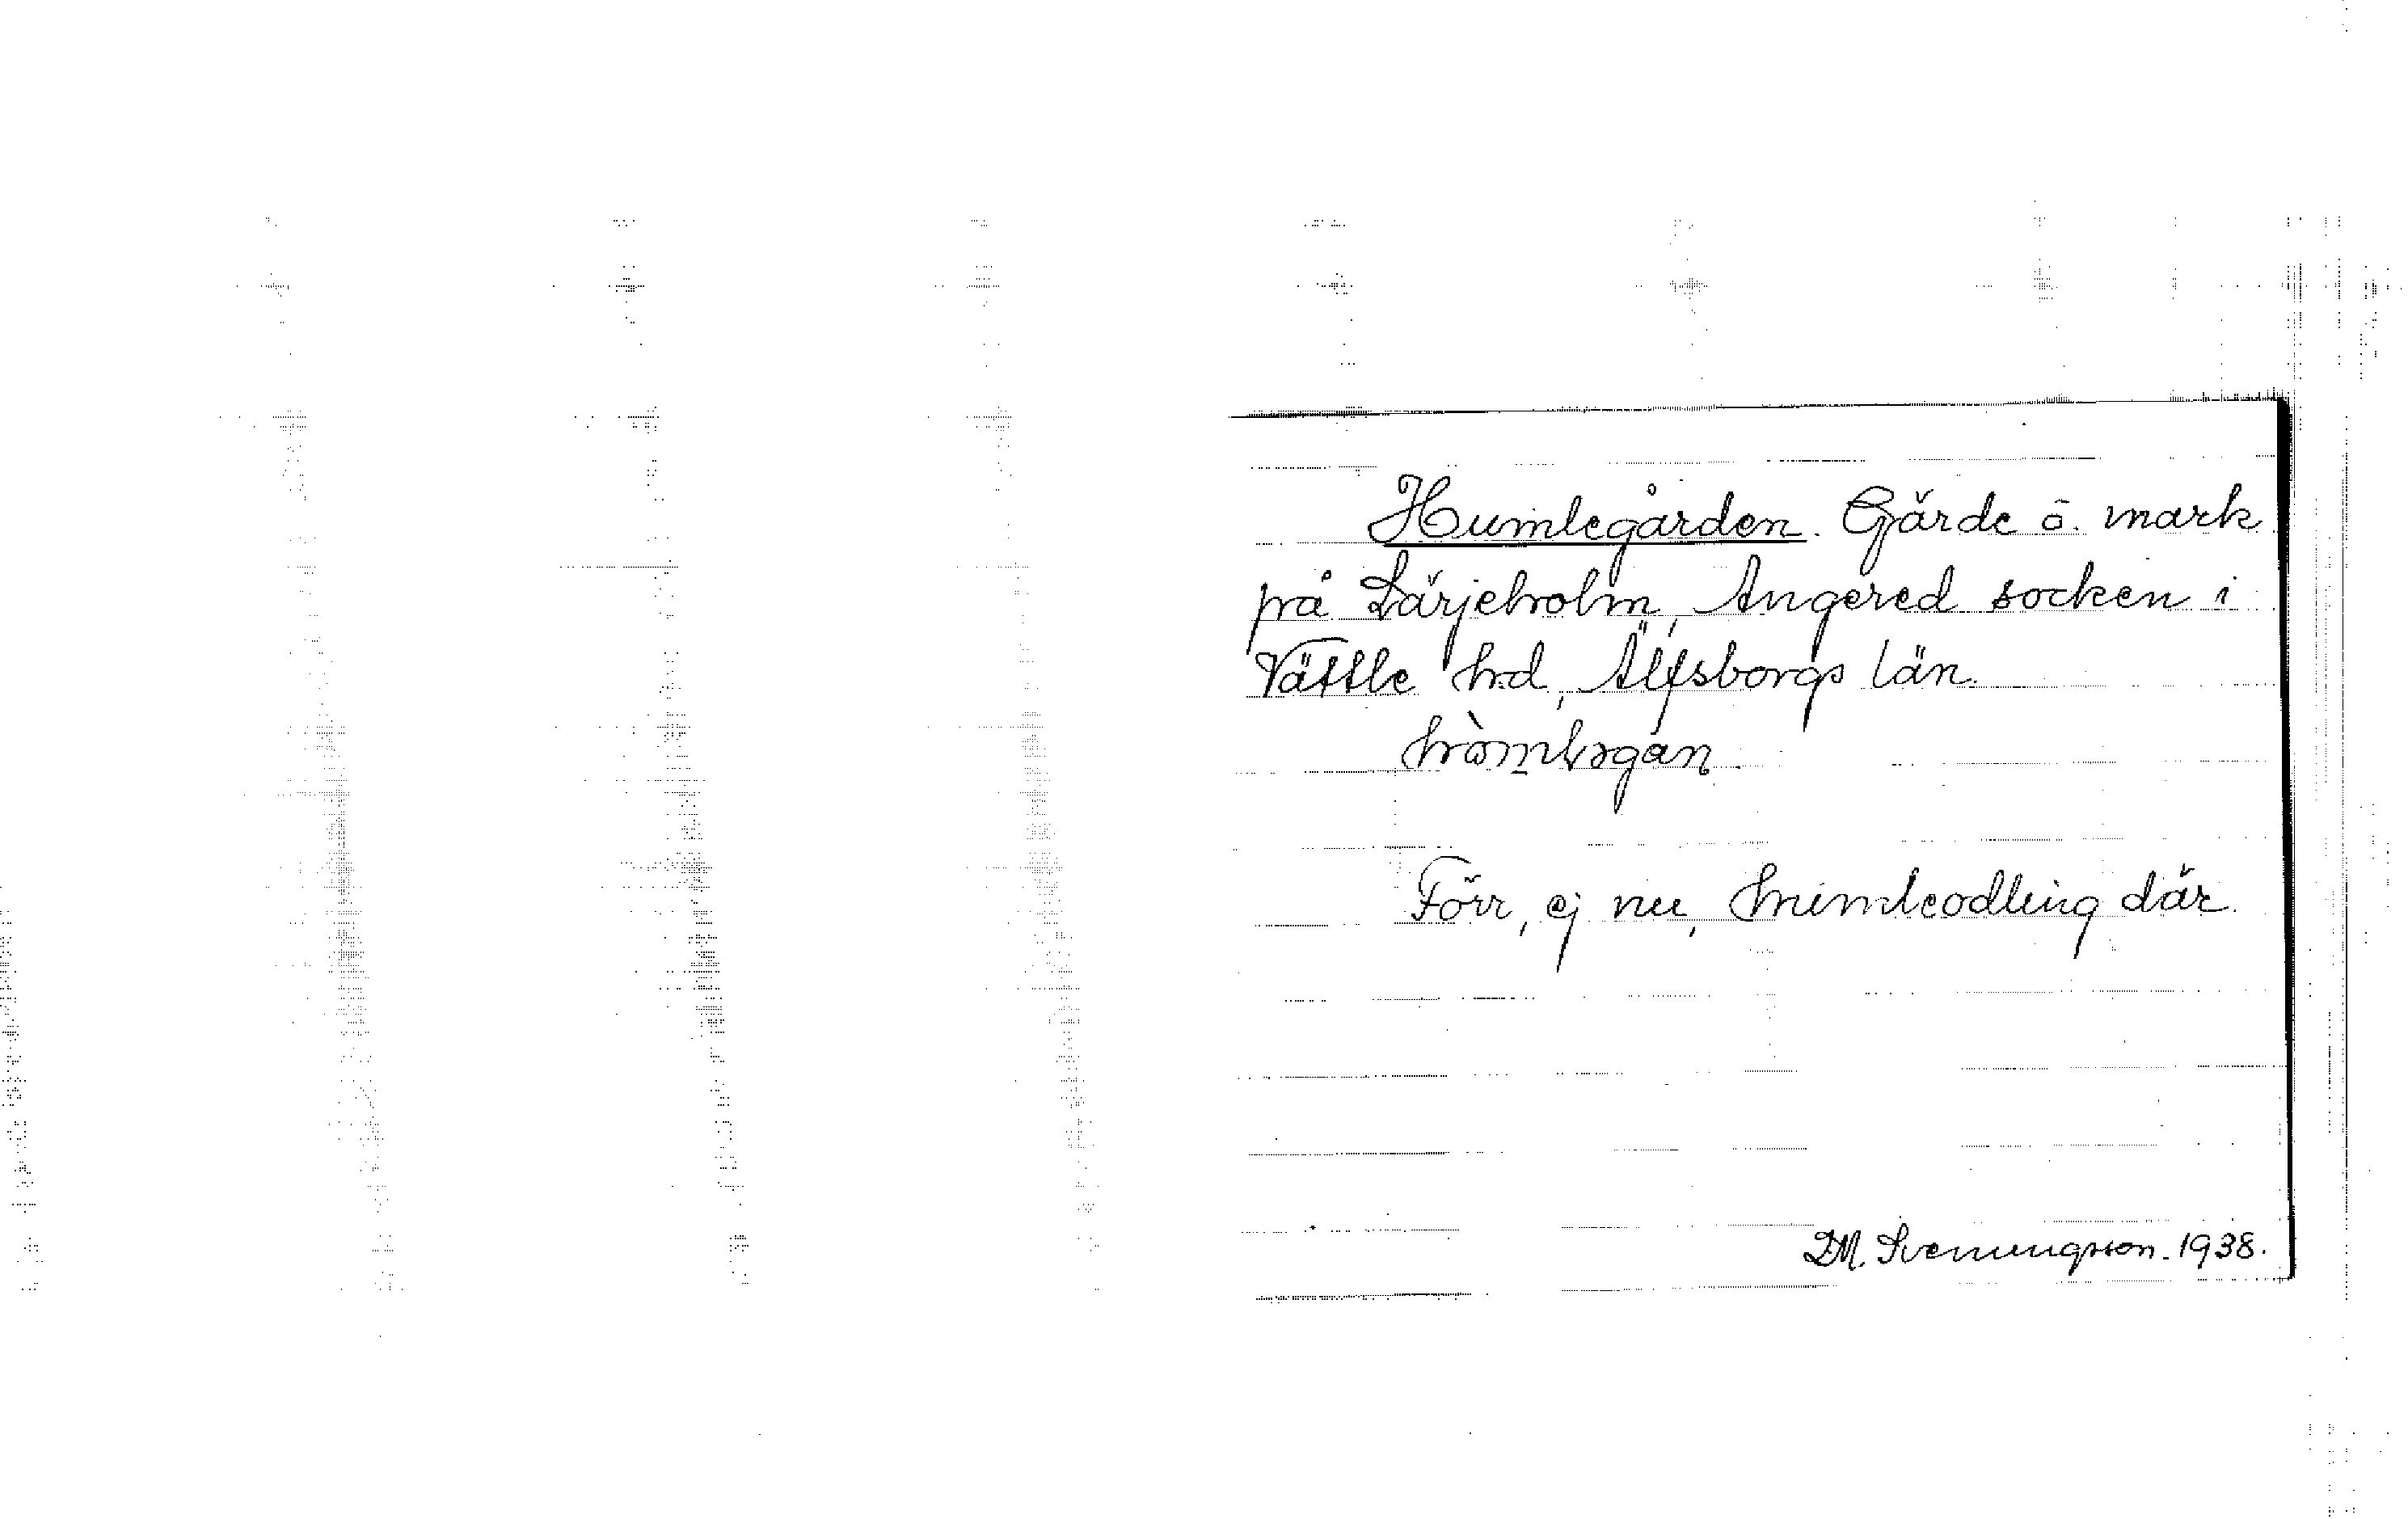 Humlegården. Gärde ö. mark
på Lärjeholm, Angered socken i
Vättle hd, Älfsborgs län.
hòmləgán.
Förr, ej nu, humleodling där.
D.M. Svenungsson. 1938.